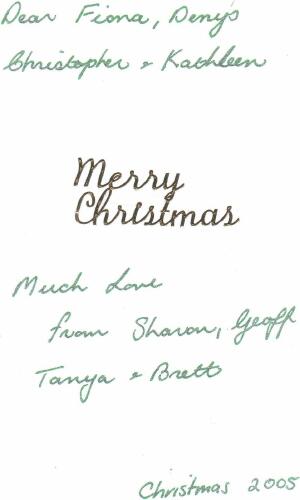 Dear Fiona, Denys
Christopher & Kathleen
Merry
Christmas
Much Love
from Sharon, Geoff
Tanya & Brett
Christmas 2005